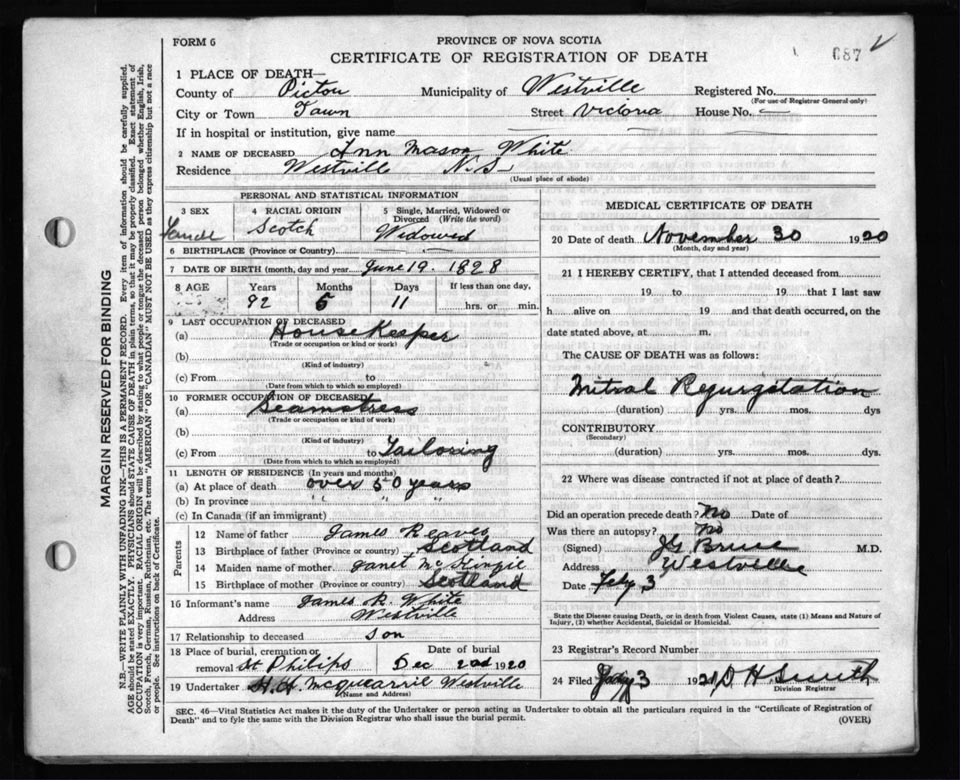 FORM 6
PROVINCE OF NOVA SCOTIA
CERTIFICATE OF REGISTRATION OF DEATH
687
1 PLACE OF DEATH—
County of Pictou Municipality of Westville Registered No.
(For use of Registrar General only)
City or Town Town Street Victoria House No.
If in hospital or institution, give name
2 NAME OF DECEASED Ann Mason White
Residence Westville N.S.
(Usual place of abode)
PERSONAL AND STATISTICAL INFORMATION
3 SEX 4 RACIAL ORIGIN 5 Single, Married, Widowed or Divorced (Write the word)
Female Scotch Widowed
6 BIRTHPLACE (Province or Country)
7 DATE OF BIRTH (month, day and year) June 19. 1828
8 AGE Years Months Days If less than one day,
92 5 11 hrs. or min.
9 LAST OCCUPATION OF DECEASED
(a) House Keeper
(Trade or occupation or kind or work)
(b)
(Kind of industry)
(c) From to
(Date from which to which so employed)
10 FORMER OCCUPATION OF DECEASED
(a) Seamstress
(Trade or occupation or kind of work)
(b)
(Kind of industry)
(c) From to Tailoring
(Date from which to which so employed)
11 LENGTH OF RESIDENCE (In years and months)
(a) At place of death over 50 years
(b) In province " " "
(c) In Canada (if an immigrant)
Parents
12 Name of father James Reaves
13 Birthplace of father (Province or country) Scotland
14 Maiden name of mother Janet McKinzie
15 Birthplace of mother (Province or country) Scotland
16 Informant's name James R. White
Address Westville
17 Relationship to deceased son
18 Place of burial, cremation or removal St Philips Date of burial Dec 2nd 1920
19 Undertaker H. H. McQuarrie Westville
(Name and Address)
MEDICAL CERTIFICATE OF DEATH
20 Date of death November 30 1920
(Month, day and year)
21 I HEREBY CERTIFY, that I attended deceased from
19 to 19 that I last saw
h alive on 19 and that death occurred, on the
date stated above, at m.
The CAUSE OF DEATH was as follows:
Mitral Regurgitation
(duration) yrs. mos. dys
CONTRIBUTORY
(Secondary)
(duration) yrs. mos. dys.
22 Where was disease contracted if not at place of death?
Did an operation precede death? No Date of
Was there an autopsy? No
(Signed) Bruce M.D.
Address Westville
Date 3
State the Disease causing Death, or in death from Violent Causes, state (1) Means and Nature of
Injury, (2) whether Accidental, Suicidal or Homicidal.
23 Registrar's Record Number
24 Filed 3 1921 D H Smith
Division Registrar
SEC. 46—Vital Statistics Act makes it the duty of the Undertaker or person acting as Undertaker to obtain all the particulars required in the "Certificate of Registration of
Death" and to fyle the same with the Division Registrar who shall issue the burial permit.
(OVER)
MARGIN RESERVED FOR BINDING
N.B.—WRITE PLAINLY WITH UNFADING INK—THIS IS A PERMANENT RECORD. Every item of information should be carefully supplied.
AGE should be stated EXACTLY. PHYSICIANS should STATE CAUSE OF DEATH in plain terms, so that it may be properly classified. Exact statement of
OCCUPATION is very important. RACIAL ORIGIN will be described by stating to what people or tongue the deceased person belonged whether English, Irish,
Scotch, French, German, Russian, Ruthenian, etc. The terms "AMERICAN" OR "CANADIAN" MUST NOT BE USED as they express citizenship but not a race
or people. See instructions on back of Certificate.